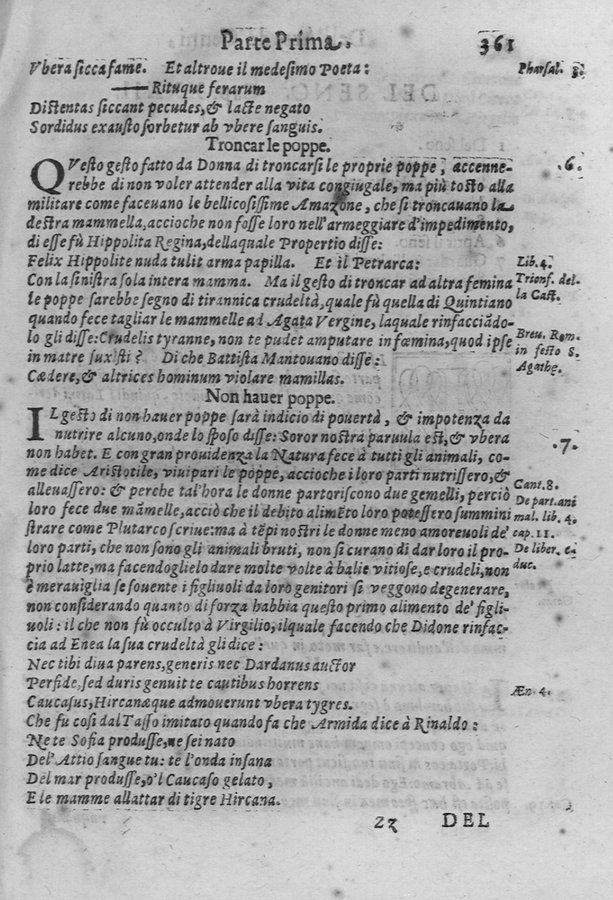 Parte Prima. 361
Vbera sicca fame. Et altroue il medesimo Poeta: Pharsal. 3.
Rituque ferarum
Distentas siccant pecudes, & lacte negato
Sordidus exausto sorbetur ab vbere sanguis.
Troncar le poppe.
QVesto gesto fatto da Donna di troncarsi le proprie poppe, accenne- .6.
rebbe di non voler attender alla vita congiugale, ma più tosto alla
militare come faceuano le bellicosissime Amazone, che si troncauano la
destra mammella, accioche non fosse loro nell'armeggiare d'impedimento,
di esse fù Hippolita Regina, dellaquale Propertio disse:
Felix Hippolite nuda tulit arma papilla. Et il Petrarca: Lib. 4.
Con la sinistra sola intera mamma. Ma il gesto di troncar ad altra femina Trionf. del-
le poppe sarebbe segno di tirannica crudeltà, quale fù quella di Quintiano la Cast.
quando fece tagliar le mammelle ad Agata Vergine, laquale rinfacciãdo-
lo gli disse: Crudelis tyranne, non te pudet amputare in fœmina, quod ipse Breu. Rom.
in matre suxisti? Di che Battista Mantouano disse: in festo S.
Cædere, & altrices hominum violare mamillas. Agathe.
Non hauer poppe.
IL gesto di non hauer poppe sarà indicio di pouertà, & impotenza da
nutrire alcuno, onde lo sposo disse: Soror nostra paruula est, & vbera .7.
non habet. E con gran prouidenza la Natura fece à tutti gli animali, co-
me dice Aristotile, viuipari le poppe, accioche i loro parti nutrissero, &
alleuassero: & perche tal'hora le donne partoriscono due gemelli, perciò Cant. 8.
loro fece due mãmelle, acciò che il debito alimẽto loro potessero summini De part. ani
strare come Plutarco scriue: ma à tẽpi nostri le donne meno amoreuoli de' mal. lib. 4.
loro parti, che non sono gli animali bruti, non si curano di dar loro il pro- cap. 11.
prio latte, ma facendoglielo dare molte volte à balie vitiose, e crudeli, non De liber. ed
è merauiglia se souente i figliuoli da loro genitori si veggono degenerare, duc.
non considerando quanto di forza habbia questo primo alimento de' figli-
uoli: il che non fù occulto à Virgilio, ilquale facendo che Didone rinfac-
cia ad Enea la sua crudeltà gli dice:
Nec tibi diua parens, generis nec Dardanus auctor
Perfide, sed duris genuit te cautibus horrens Æn 4.
Caucasus, Hircanæque admouerunt vbera tygres.
Che fu così dal Tasso imitato quando fa che Armida dice à Rinaldo:
Ne te Sofia produsse, ne sei nato
Del' Attio sangue tu: te l'onda insana
Del mar produsse, o'l Caucaso gelato,
E le mamme allattar di tigre Hircana.
Zz DEL